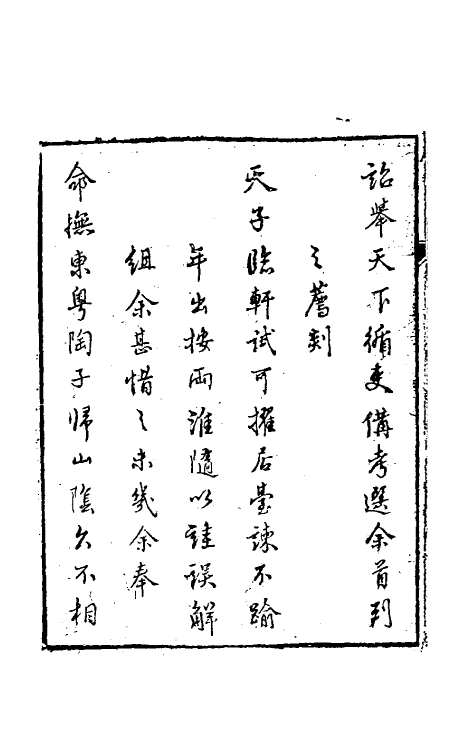 詔舉天下循吏備考選余首列
之薦剡
天子臨軒試可擢居臺諫不踰
年出按兩淮隨以詿誤解
組余甚惜之未幾余奉
命撫東粵陶子歸山陰久不相